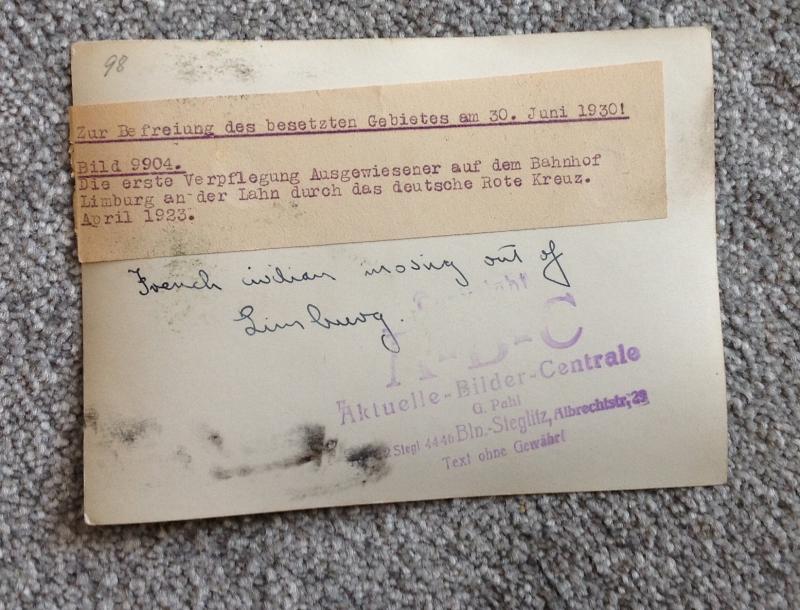 98
Zur Befreiung des besetzten Gebietes am 30. Juni 1930!
Bild 9904.
Die erste Verpflegung Ausgewiesener auf dem Bahnhof
Limburg an der Lahn durch das deutsche Rote Kreuz.
April 1923.
French civilian moving out of
Limburg.
A-B-C
Aktuelle-Bilder-Centrale
G. Pahl
Stegl 4446 Bln.-Steglitz, Albrechtstr, 29
Text ohne Gewähr!